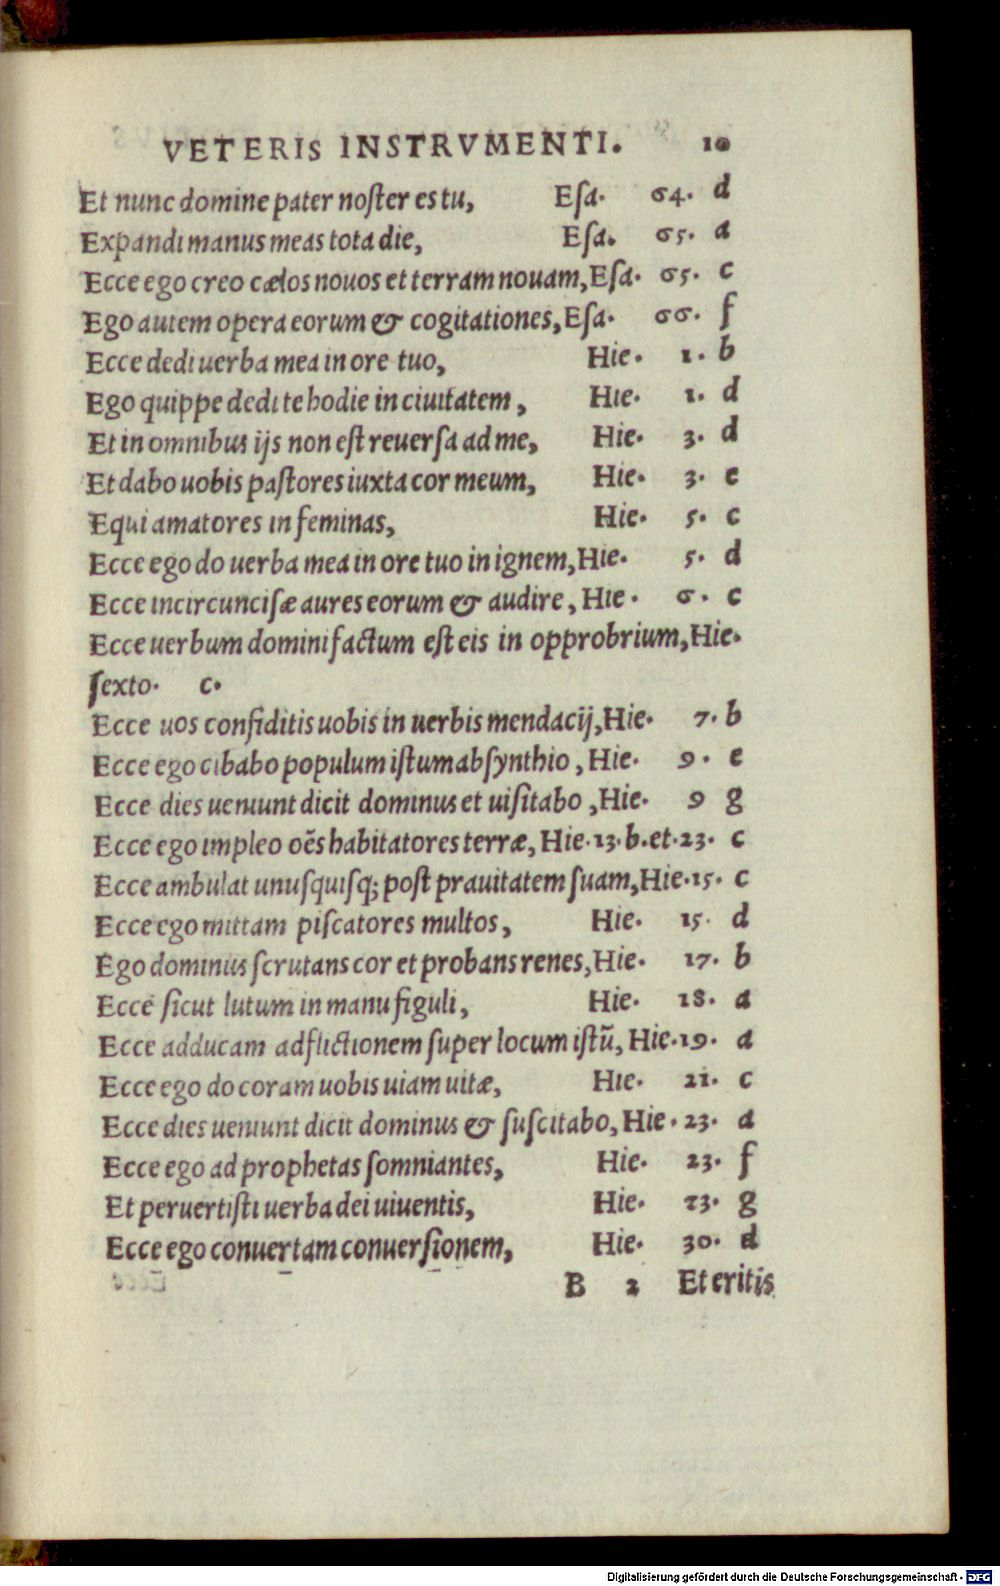 VETERIS INSTRVMENTI. 10
Et nunc domine pater noſter es tu, Eſa. 64. d
Expandi manus meas tota die, Eſa. 65. a
Ecce ego creo cælos nouos et terram nouam, Eſa. 65. c
Ego autem opera eorum & cogitationes, Eſa. 66. f
Ecce dedi uerba mea in ore tuo, Hie. 1. b
Ego quippe dedi te hodie in ciuitatem, Hie. 1. d
Et in omnibus ijs non eſt reuerſa ad me, Hie. 3. d
Et dabo uobis paſtores iuxta cor meum, Hie. 3. e
Equi amatores in feminas, Hie. 5. c
Ecce ego do uerba mea in ore tuo in ignem, Hie. 5. d
Ecce incircunciſæ aures eorum & audire, Hie. 6. c
Ecce uerbum domini factum eſt eis in opprobrium, Hie.
ſexto. c.
Ecce uos confiditis uobis in uerbis mendacij, Hie. 7. b
Ecce ego cibabo populum iſtum abſynthio, Hie. 9. e
Ecce dies ueniunt dicit dominus et uiſitabo, Hie. 9 g
Ecce ego impleo oēs habitatores terræ, Hie. 13. b. et. 23. c
Ecce ambulat unuſquiſq; poſt prauitatem ſuam, Hie. 15. c
Ecce ego mittam piſcatores multos, Hie. 15. d
Ego dominus ſcrutans cor et probans renes, Hie. 17. b
Ecce ſicut lutum in manu figuli, Hie. 18. a
Ecce adducam adflictionem ſuper locum iſtū, Hie. 19. a
Ecce ego do coram uobis uiam uitæ, Hie. 21. c
Ecce dies ueniunt dicit dominus & ſuſcitabo, Hie. 23. a
Ecce ego ad prophetas ſomniantes, Hie. 23. f
Et peruertiſti uerba dei uiuentis, Hie. 23. g
Ecce ego conuertam conuerſionem, Hie. 30. d
B 2 Et eritis
Digitalisierung gefördert durch die Deutsche Forschungsgemeinschaft - DFG